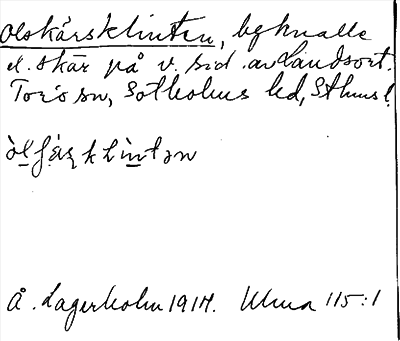 Olskärsklinten, bgknalle
el. skär på v. sid. av Landsort.
Torö sn, Sotholms hd, Sthms l.
òlʃæ̀ʂklìntən
Å. Lagerholm 1917. Ulma 115:1